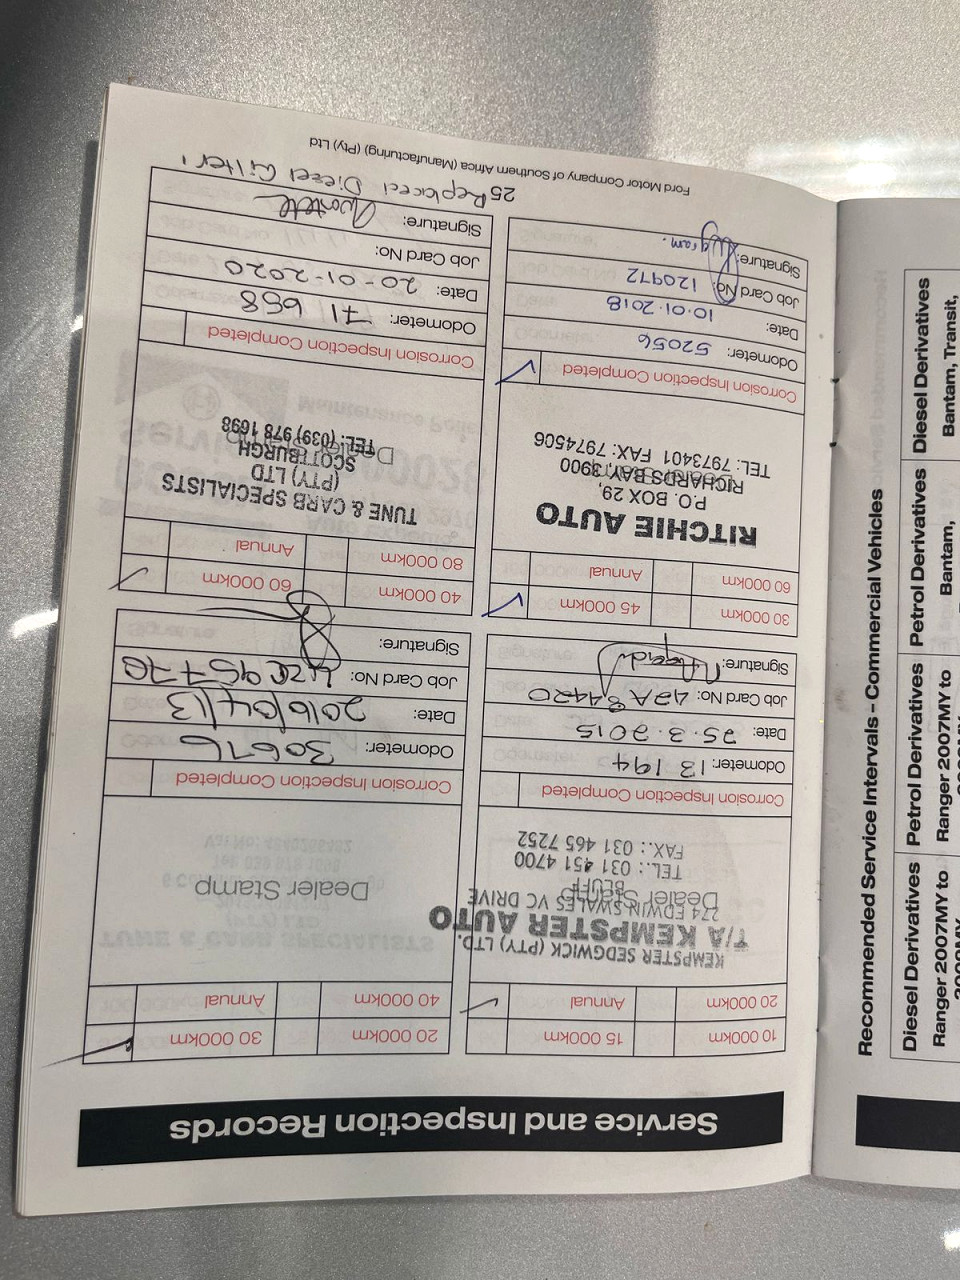 Service and Inspection Records
10 000km 15 000km
20 000km Annual
KEMPSTER SEDGWICK (PTY) LTD.
T/A KEMPSTER AUTO
274 EDWIN SWALES VC DRIVE
BLUFF
Dealer Stamp
TEL.: 031 451 4700
FAX.: 031 465 7252
Corrosion Inspection Completed
Odometer: 13 194
Date: 25.3.2015
Job Card No: 42A8A420
Signature:
20 000km 30 000km
40 000km Annual
Dealer Stamp
Corrosion Inspection Completed
Odometer: 30676
Date: 2016/04/13
Job Card No: 42C95770
Signature:
30 000km 45 000km
60 000km Annual
RITCHIE AUTO
P.O. BOX 29,
RICHARDS BAY 3900
TEL: 7973401 FAX: 7974506
Corrosion Inspection Completed
Odometer: 52056
Date: 10.01.2018
Job Card No: 120972
Signature:
40 000km 60 000km
80 000km Annual
TUNE & CARB SPECIALISTS
(PTY) LTD
SCOTTBURGH
Dealer Stamp
TEL: (039) 978 1698
Corrosion Inspection Completed
Odometer: 71 688
Date: 20-01-2020
Job Card No:
Signature:
25 Replaced Diesel Filter!
Ford Motor Company of Southern Africa (Manufacturing) (Pty) Ltd
Recommended Service Intervals - Commercial Vehicles
Diesel Derivatives Petrol Derivatives Petrol Derivatives Diesel Derivatives
Ranger 2007MY to Ranger 2007MY to Bantam, Bantam, Transit,